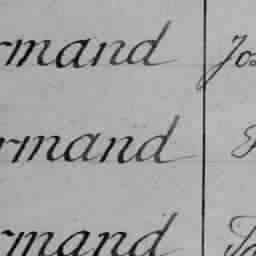 rmand Jos
rmand
rmand